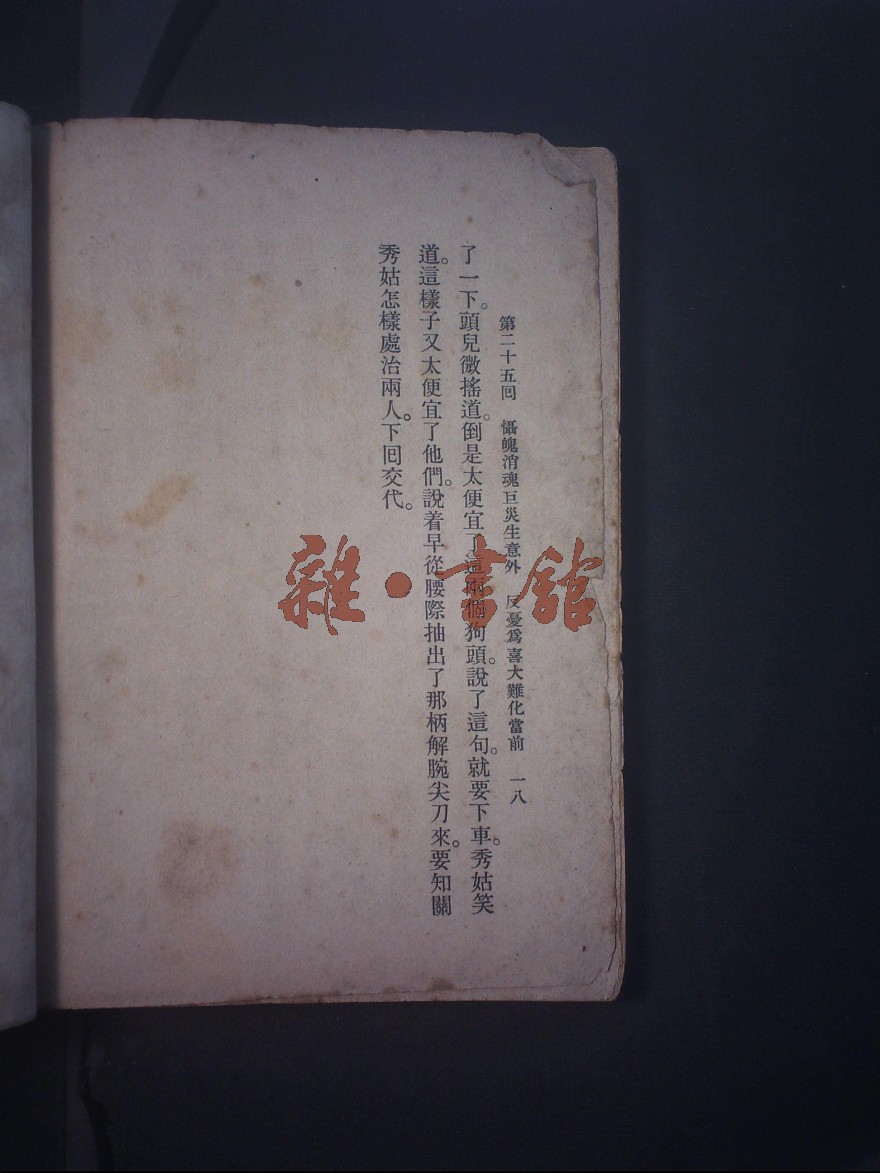 第二十五囘 懾魄消魂巨災生意外 反憂爲喜大難化當前 一八
了一下。頭兒微搖道。倒是太便宜了這兩個狗頭。說了這句。就要下車。秀姑笑
道。這樣子又太便宜了他們。說着早從腰際抽出了那柄解腕尖刀來。要知關
秀姑怎樣處治兩人。下囘交代。
雜·書館